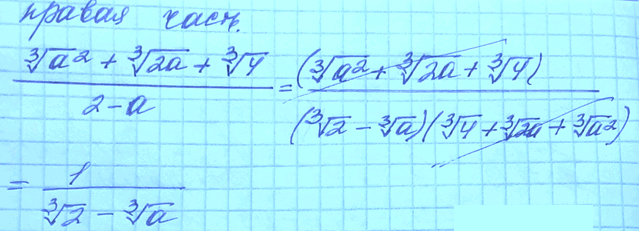 правая часть.
\frac{\sqrt[3]{a^2} + \sqrt[3]{2a} + \sqrt[3]{4}}{2-a} = \frac{(\sqrt[3]{a^2} + \sqrt[3]{2a} + \sqrt[3]{4})}{(\sqrt[3]{2} - \sqrt[3]{a})(\sqrt[3]{4} + \sqrt[3]{2a} + \sqrt[3]{a^2})}
= \frac{1}{\sqrt[3]{2} - \sqrt[3]{a}}